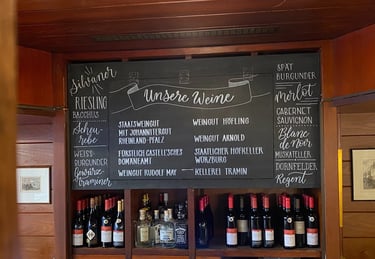 Silvaner
RIESLING
BACCHUS
Scheu-
rebe
WEISS-
BURGUNDER
Gewürz-
traminer
Unsere Weine
STAATSWEINGUT
MIT JOHANNITERGUT
RHEINLAND-PFALZ
FÜRSTLICH CASTELL'SCHES
DOMÄNEAMT
WEINGUT RUDOLF MAY
WEINGUT HÖFLING
WEINGUT ARNOLD
STAATLICHER HOFKELLER
WÜRZBURG
KELLEREI TRAMIN
SPÄT
BURGUNDER
Merlot
CABERNET
SAUVIGNON
Blanc
de Noir
MUSKATELLER
DORNFELDER
Regent